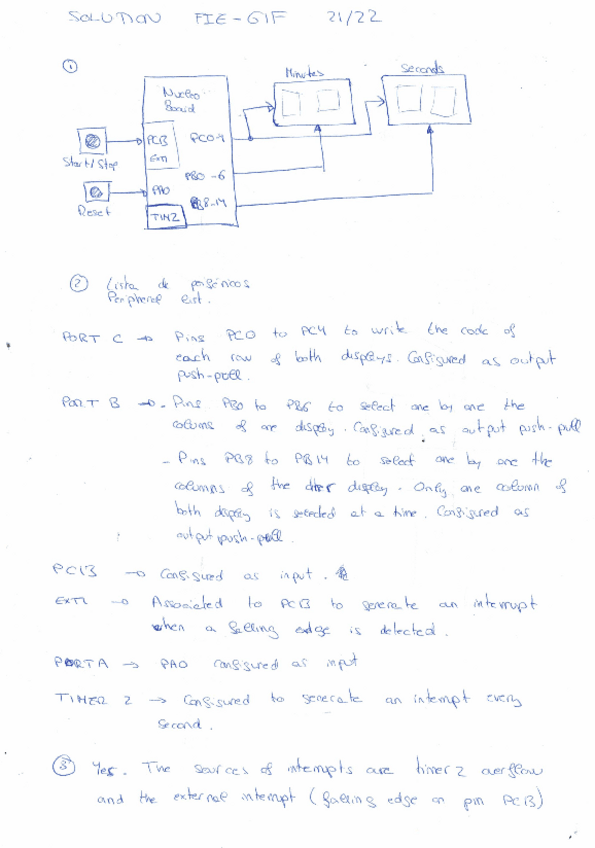 SOLUTION FIE-GIF 21/22
①
Minutes
Seconds
Nucleo
Board
PC13
Exti
PC0-4
Start/Stop
PB0-6
PA0
PB8-14
Reset
TIM2
② Lista de periféricos
Peripheral list.
PORT C → Pins PC0 to PC4 to write the code of
each row of both displays. Configured as output
push-pull.
PORT B → - Pins PB0 to PB6 to select one by one the
colums of one display. Configured as output push-pull
- Pins PB8 to PB14 to select one by one the
columns of the other display. Only one column of
both display is selected at a time. Configured as
output push-pull.
PC13 → Configured as input.
EXTI → Associated to PC13 to generate an interrupt
when a falling edge is detected.
PORT A → PA0 configured as input
TIMER 2 → Configured to generate an interrupt every
second.
③ Yes. The sources of interrupts are timer 2 overflow
and the external interrupt (falling edge on pin PC13)